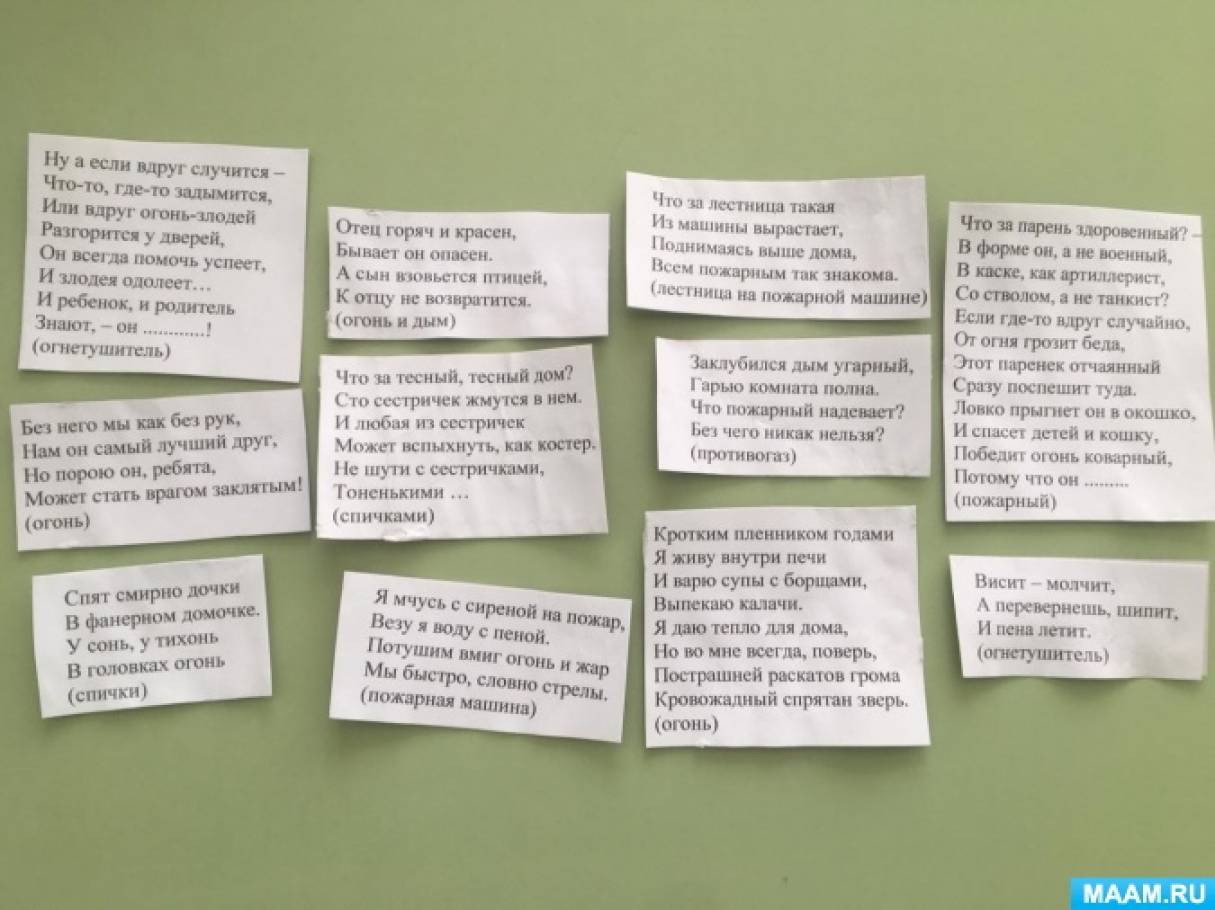 Ну а если вдруг случится –
Что-то, где-то задымится,
Или вдруг огонь-злодей
Разгорится у дверей,
Он всегда помочь успеет,
И злодея одолеет…
И ребенок, и родитель
Знают, – он ............!
(огнетушитель)
Без него мы как без рук,
Нам он самый лучший друг,
Но порою он, ребята,
Может стать врагом заклятым!
(огонь)
Спят смирно дочки
В фанерном домочке.
У сонь, у тихонь
В головках огонь
(спички)
Отец горяч и красен,
Бывает он опасен.
А сын взовьется птицей,
К отцу не возвратится.
(огонь и дым)
Что за тесный, тесный дом?
Сто сестричек жмутся в нем.
И любая из сестричек
Может вспыхнуть, как костер.
Не шути с сестричками,
Тоненькими …
(спичками)
Я мчусь с сиреной на пожар,
Везу я воду с пеной.
Потушим вмиг огонь и жар
Мы быстро, словно стрелы.
(пожарная машина)
Что за лестница такая
Из машины вырастает,
Поднимаясь выше дома,
Всем пожарным так знакома.
(лестница на пожарной машине)
Заклубился дым угарный,
Гарью комната полна.
Что пожарный надевает?
Без чего никак нельзя?
(противогаз)
Кротким пленником годами
Я живу внутри печи
И варю супы с борщами,
Выпекаю калачи.
Я даю тепло для дома,
Но во мне всегда, поверь,
Пострашней раскатов грома
Кровожадный спрятан зверь.
(огонь)
Что за парень здоровенный? –
В форме он, а не военный,
В каске, как артиллерист,
Со стволом, а не танкист?
Если где-то вдруг случайно,
От огня грозит беда,
Этот паренек отчаянный
Сразу поспешит туда.
Ловко прыгнет он в окошко,
И спасет детей и кошку,
Победит огонь коварный,
Потому что он .........
(пожарный)
Висит – молчит,
А перевернешь, шипит,
И пена летит.
(огнетушитель)
MAAM.RU